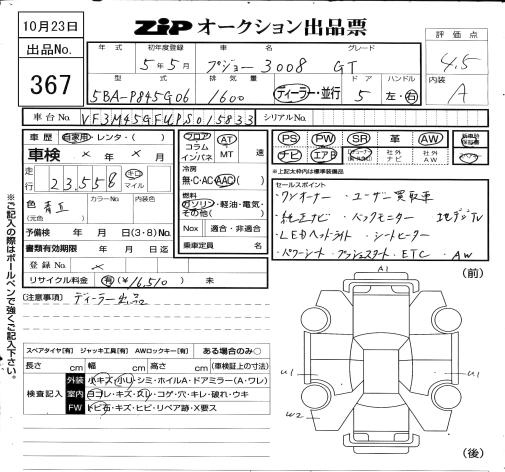 10月23日
出品No.
367
ZIP オークション出品票
評価点
4.5
内装
A
年式 初年度登録 車名 グレード
5年5月 プジョー 3008 GT
型式 排気量 ドア ハンドル
5BA-P845G06 1600 ディーラー・並行 5 左・右
車台No. VF3M45GFUPS015833 シリアルNo.
車歴 自家用・レンタ・( )
車検 × 年 × 月
走行 23,558 キロ マイル
色 (元色) 青 カラーNo. 内装色
予備検 年 月 日(3・8)No.
書類有効期限 年 月 日迄
登録No. ×
リサイクル料金 有(¥16,510) 未
フロア コラム インパネ
AT MT 速
冷房
無・C・AC・AAC( )
燃料
ガソリン・軽油・電気・その他( )
Nox 適合・非適合
乗車定員 名
PS PW SR 革 AW
ナビ エアB 社外ナビ 社外AW
※上記太枠内は標準装備品
セールスポイント
・ワンオーナー ・ユーザー買取車
・純正ナビ ・バックモニター ・フルセグTV
・LEDヘッドライト ・シートヒーター
・パワーシート ・プッシュスタート ・ETC ・AW
〔注意事項〕 ディーラー出品
スペアタイヤ[有] ジャッキ工具[有] AWロックキー[有] ある場合のみ○
長さ cm 幅 cm 高さ cm (車検証上の寸法)
検査記入
外装 小キズ・小U・シミ・ホイルA・ドアミラー(A・ワレ)
室内 ヨゴレ・キズ・スレ・コゲ・穴・キレ・破れ・ウキ
FW トビ石・キズ・ヒビ・リペア跡・X要ス
※ご記入の際はボールペンで強くご記入下さい。
(前)
A1
U1
U1
W2
(後)